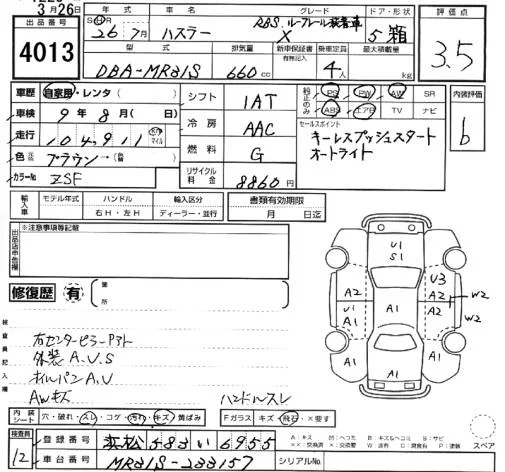 3月26日
出品番号 4013
年式 車名 グレード ドア・形状
S H R 26年 7月 ハスラー X RBS. ルーフレール装着車 5 箱
評価点 3.5
型式 排気量 新車保証書 有無記入 乗車定員 最大積載量
DBA-MR31S 660 cc 4人 kg
車歴 自家用・レンタ( )
車検 9年 8月( 日)
走行 104,911 マイル
色 ブラウン→(替 )
カラーNo ZSF
シフト IAT
冷房 AAC
燃料 G
リサイクル料金 8860円
純正のみ PS PW AW SR
ABS エアB TV ナビ
セールスポイント
キーレスプッシュスタート
オートライト
内装評価 b
輸入車 モデル年式 ハンドル 右H・左H 輸入区分 ディーラー・並行
書類有効期限 月 日迄
出品店申告欄 ※注意事項等記載
修復歴 有 箇所
検査員記入欄
右センターピラー
外装 A.U.S
オイルパン A.U
AWキズ
ハンドルスレ
U1
S1
A2
U1
A1
A1
A1
A1
U3
A2
A2
A1
W2
W2
内装シート 穴・破れ・スレ・コゲ・汚れ・キズ・黄ばみ
Fガラス キズ・飛石・×要す
検査員 12
登録番号 浜松 583 い 6955
車台番号 MR31S-233157
シリアルNo.
スペア